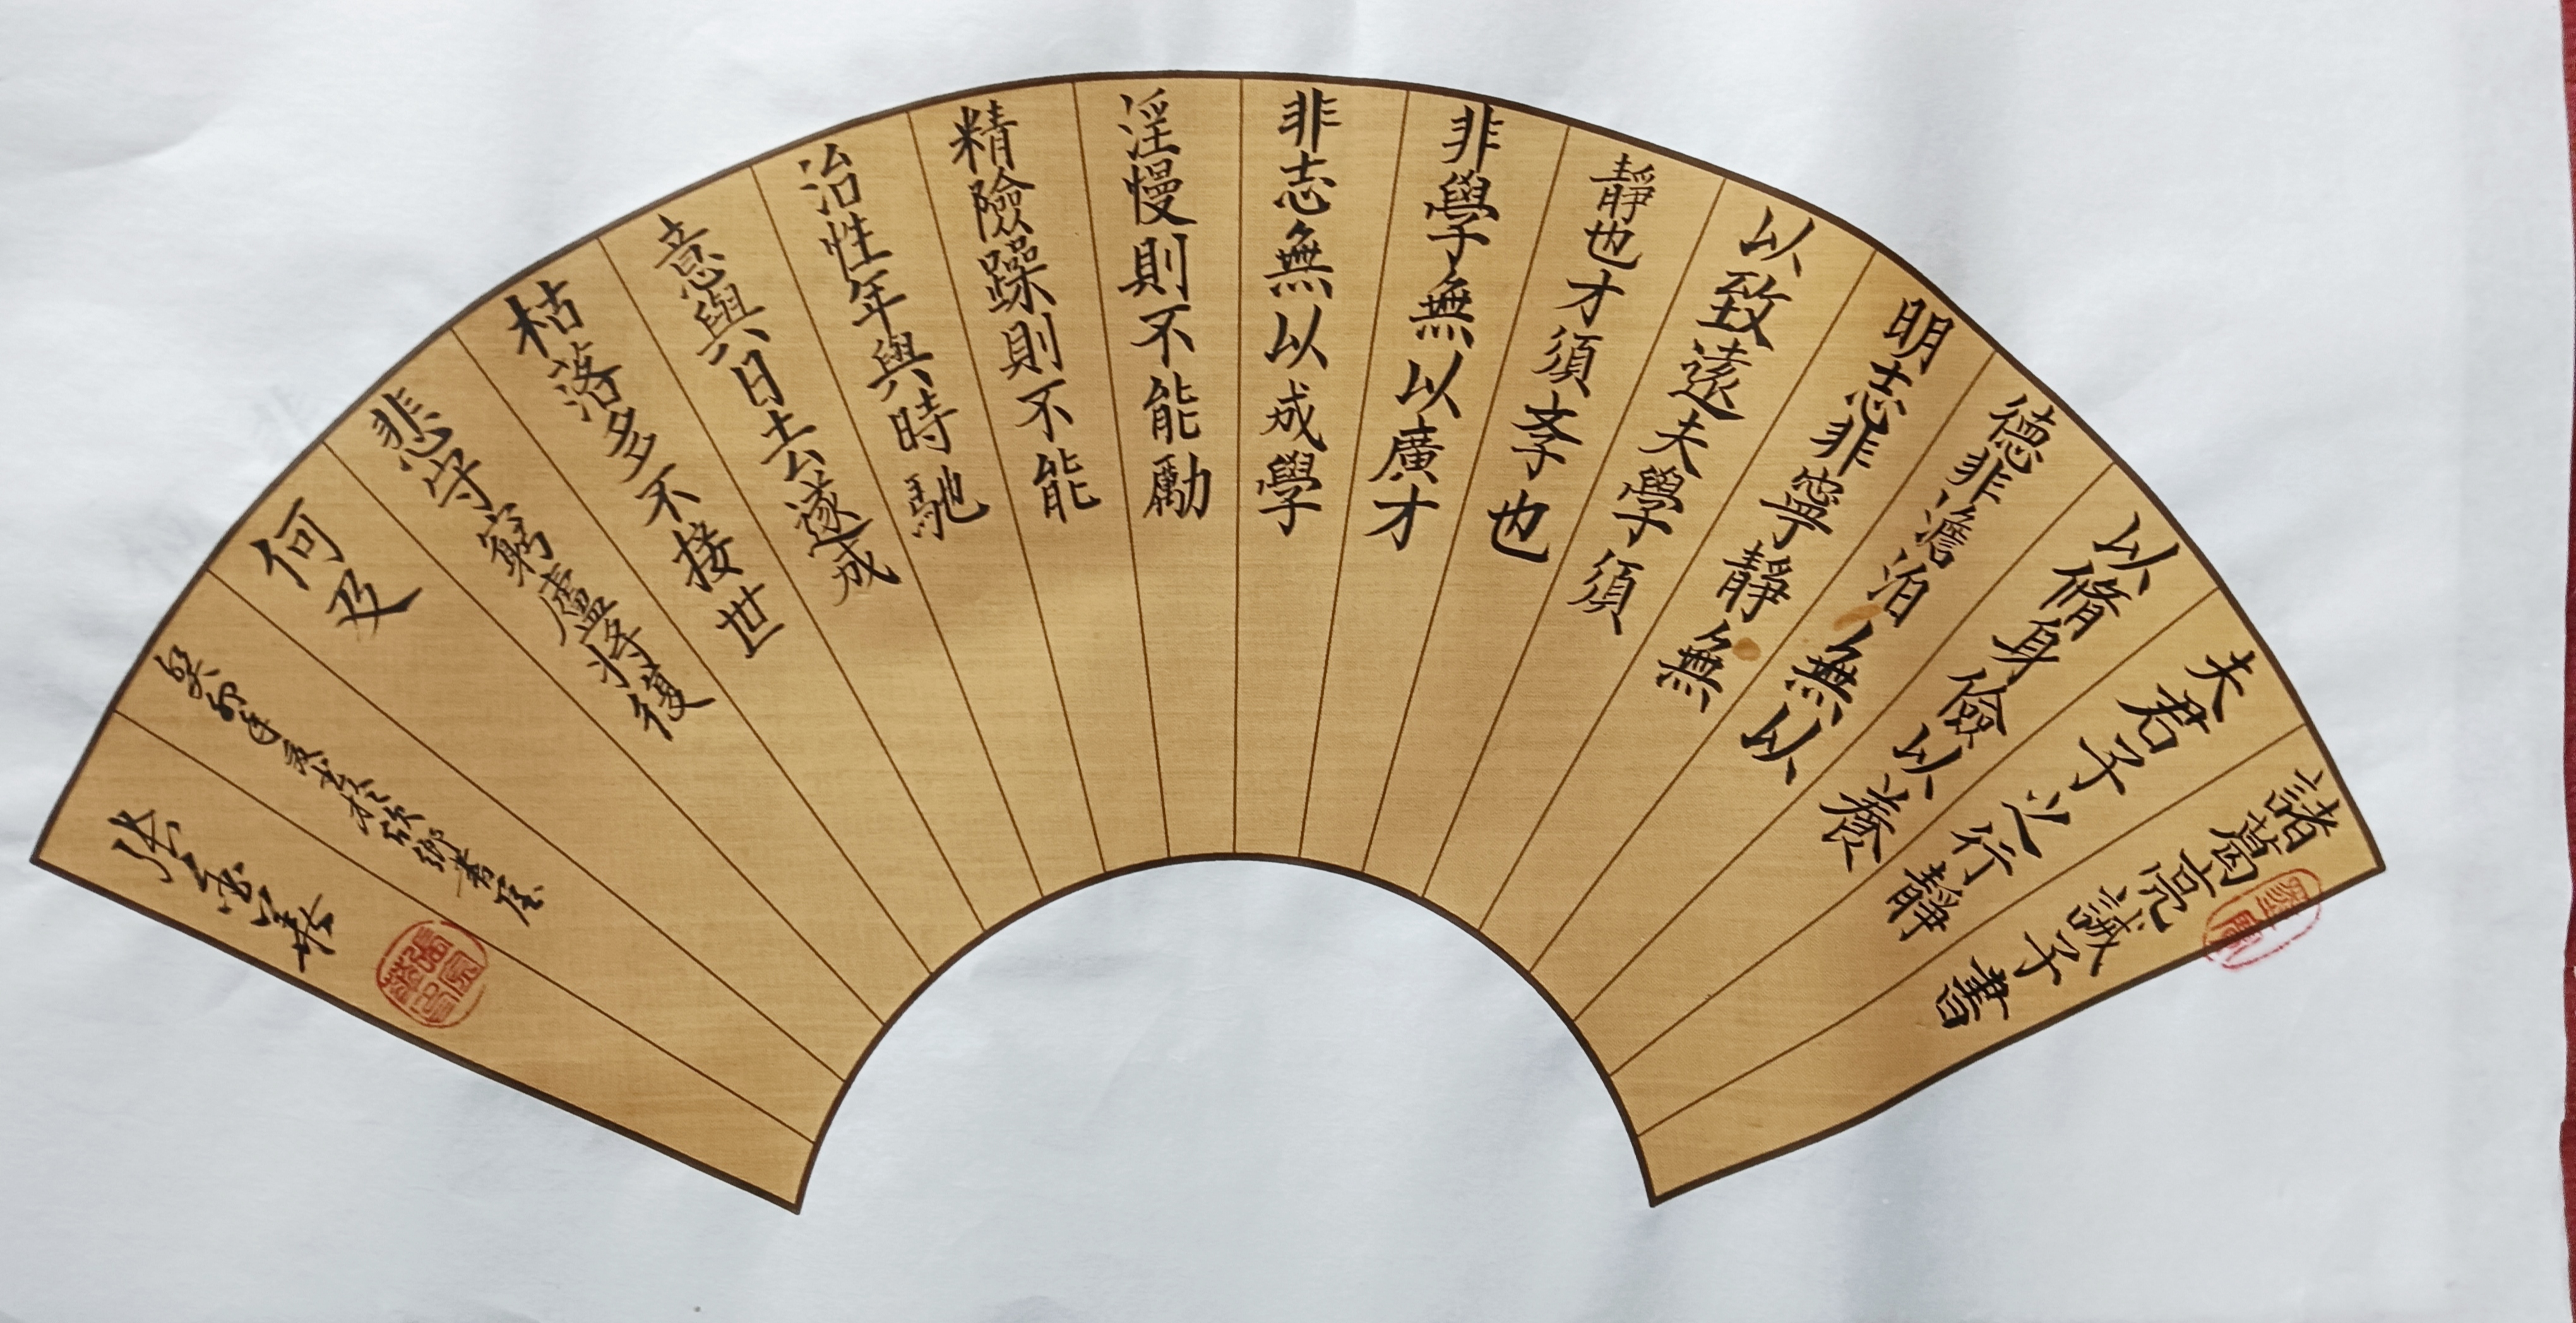 諸葛亮誡子書
夫君子之行靜
以脩身儉以養
德非澹泊無以
明志非寧靜無
以致遠夫學須
靜也才須孝也
非學無以廣才
非志無以成學
淫慢則不能勵
精險躁則不能
治性年與時馳
意與日去遂成
枯落多不接世
悲守窮廬將復
何及
癸卯年